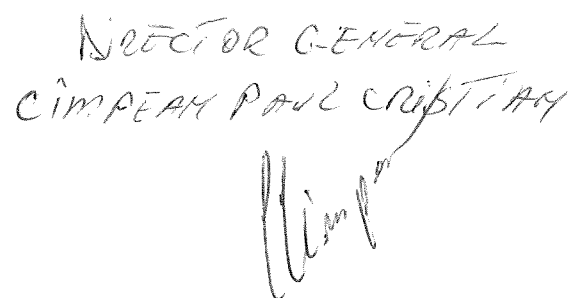 DIRECTOR GENERAL
CÎMPEAN PAUL CRISTIAN